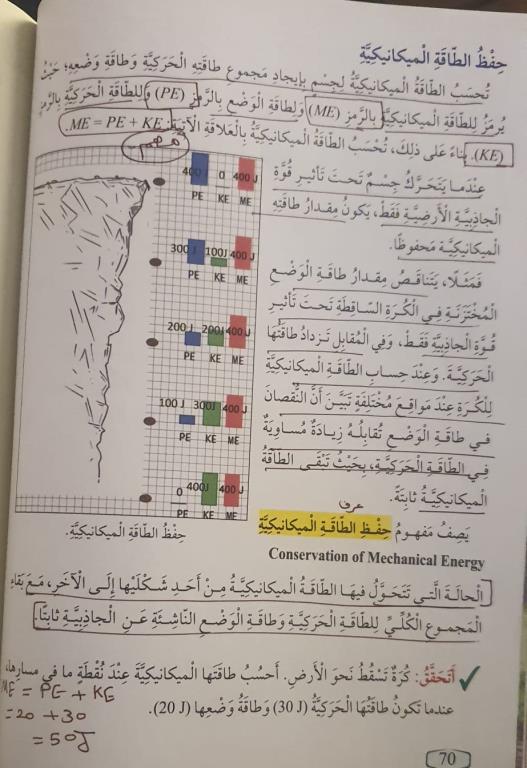 حِفْظُ الطّاقَةِ الْميكانيكِيَّةِ
تُحسَبُ الطّاقَةُ الْميكانيكِيَّةُ لِجِسْمٍ بِإيجادِ مَجموعِ طاقَتِهِ الْحَرَكِيَّةِ وَطاقَةِ وَضْعِهِ؛ حَيْثُ
يُرمَزُ لِلطّاقَةِ الْميكانيكِيَّةِ بِالرَّمزِ (ME) وَلِطاقَةِ الْوَضْعِ بِالرَّمزِ (PE) وَلِلطّاقَةِ الْحَرَكِيَّةِ بِالرَّمزِ
(KE). بِناءً عَلى ذلِكَ، تُحْسَبُ الطّاقَةُ الْميكانيكِيَّةُ بِالْعَلاقَةِ الْآتِيَةِ: ME = PE + KE.
مهم
عِنْدَما يَتَحَرَّكُ جِسْمٌ تَحتَ تَأثيرِ قُوَّةِ
الْجاذِبِيَّةِ الْأَرضِيَّةِ فَقَطْ، يَكونُ مِقدارُ طاقَتِهِ
الْميكانيكِيَّةِ مَحفوظًا.
فَمَثَلًا، يَتَناقَصُ مِقدارُ طاقَةِ الْوَضْعِ
الْمُخْتَزَنَةِ فِي الْكُرَةِ السّاقِطَةِ تَحتَ تَأثيرِ
قُوَّةِ الْجاذِبِيَّةِ فَقَطْ، وَفي الْمُقابِلِ تَزدادُ طاقَتُها
الْحَرَكِيَّةُ. وَعِنْدَ حِسابِ الطّاقَةِ الْميكانيكِيَّةِ
لِلْكُرَةِ عِنْدَ مَواقِعَ مُخْتَلِفَةٍ تَبَيَّنَ أَنَّ النُّقْصانَ
في طاقَةِ الْوَضْعِ تُقابِلُهُ زِيادَةٌ مُساوِيَةٌ
فِي الطّاقَةِ الْحَرَكِيَّةِ، بِحَيْثُ تَبْقى الطّاقَةُ
الْميكانيكِيَّةُ ثابِتَةً.
عرف
يَصِفُ مَفهومُ حِفْظِ الطّاقَةِ الْميكانيكِيَّةِ
Conservation of Mechanical Energy
400 J 0 400 J
PE KE ME
300 J 100J 400 J
PE KE ME
200 J 200J 400 J
PE KE ME
100 J 300J 400 J
PE KE ME
0 400J 400 J
PE KE ME
حِفْظُ الطّاقَةِ الْميكانيكِيَّةِ.
الْحالَةَ الَّتي تَتَحَوَّلُ فيها الطّاقَةُ الْميكانيكِيَّةُ مِنْ أَحَدِ شَكْلَيْها إِلى الْآخَرِ، مَعَ بَقاءِ
الْمَجموعِ الْكُلِّيِّ لِلطّاقَةِ الْحَرَكِيَّةِ وَطاقَةِ الْوَضْعِ النّاشِئَةِ عَنِ الْجاذِبِيَّةِ ثابِتًا.
أَتَحَقَّقُ: كُرَةٌ تَسْقُطُ نَحوَ الْأَرضِ. أَحسُبُ طاقَتَها الْميكانيكِيَّةَ عِنْدَ نُقْطَةٍ ما في مسارِها،
عندما تَكونُ طاقَتُها الْحَرَكِيَّةُ (30 J) وَطاقَةُ وَضْعِها (20 J).
ME = PE + KE
=20 +30
= 50J
70